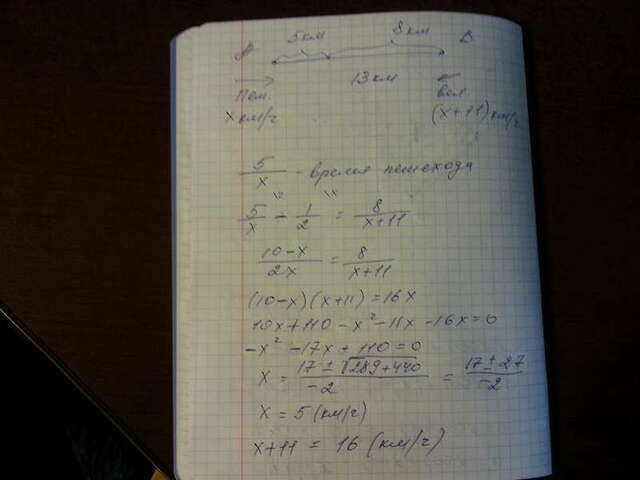 5км 8км
A B
13км
Пеш. вел.
x км/ч (x+11) км/ч
5/x - время пешехода
\2 \x
5/x - 1/2 = 8/x+11
10-x/2x = 8/x+11
(10-x)(x+11) = 16x
10x+110-x²-11x-16x=0
-x²-17x+110=0
x = 17±√289+440/-2 = 17±27/-2
x = 5 (км/ч)
x+11 = 16 (км/ч)